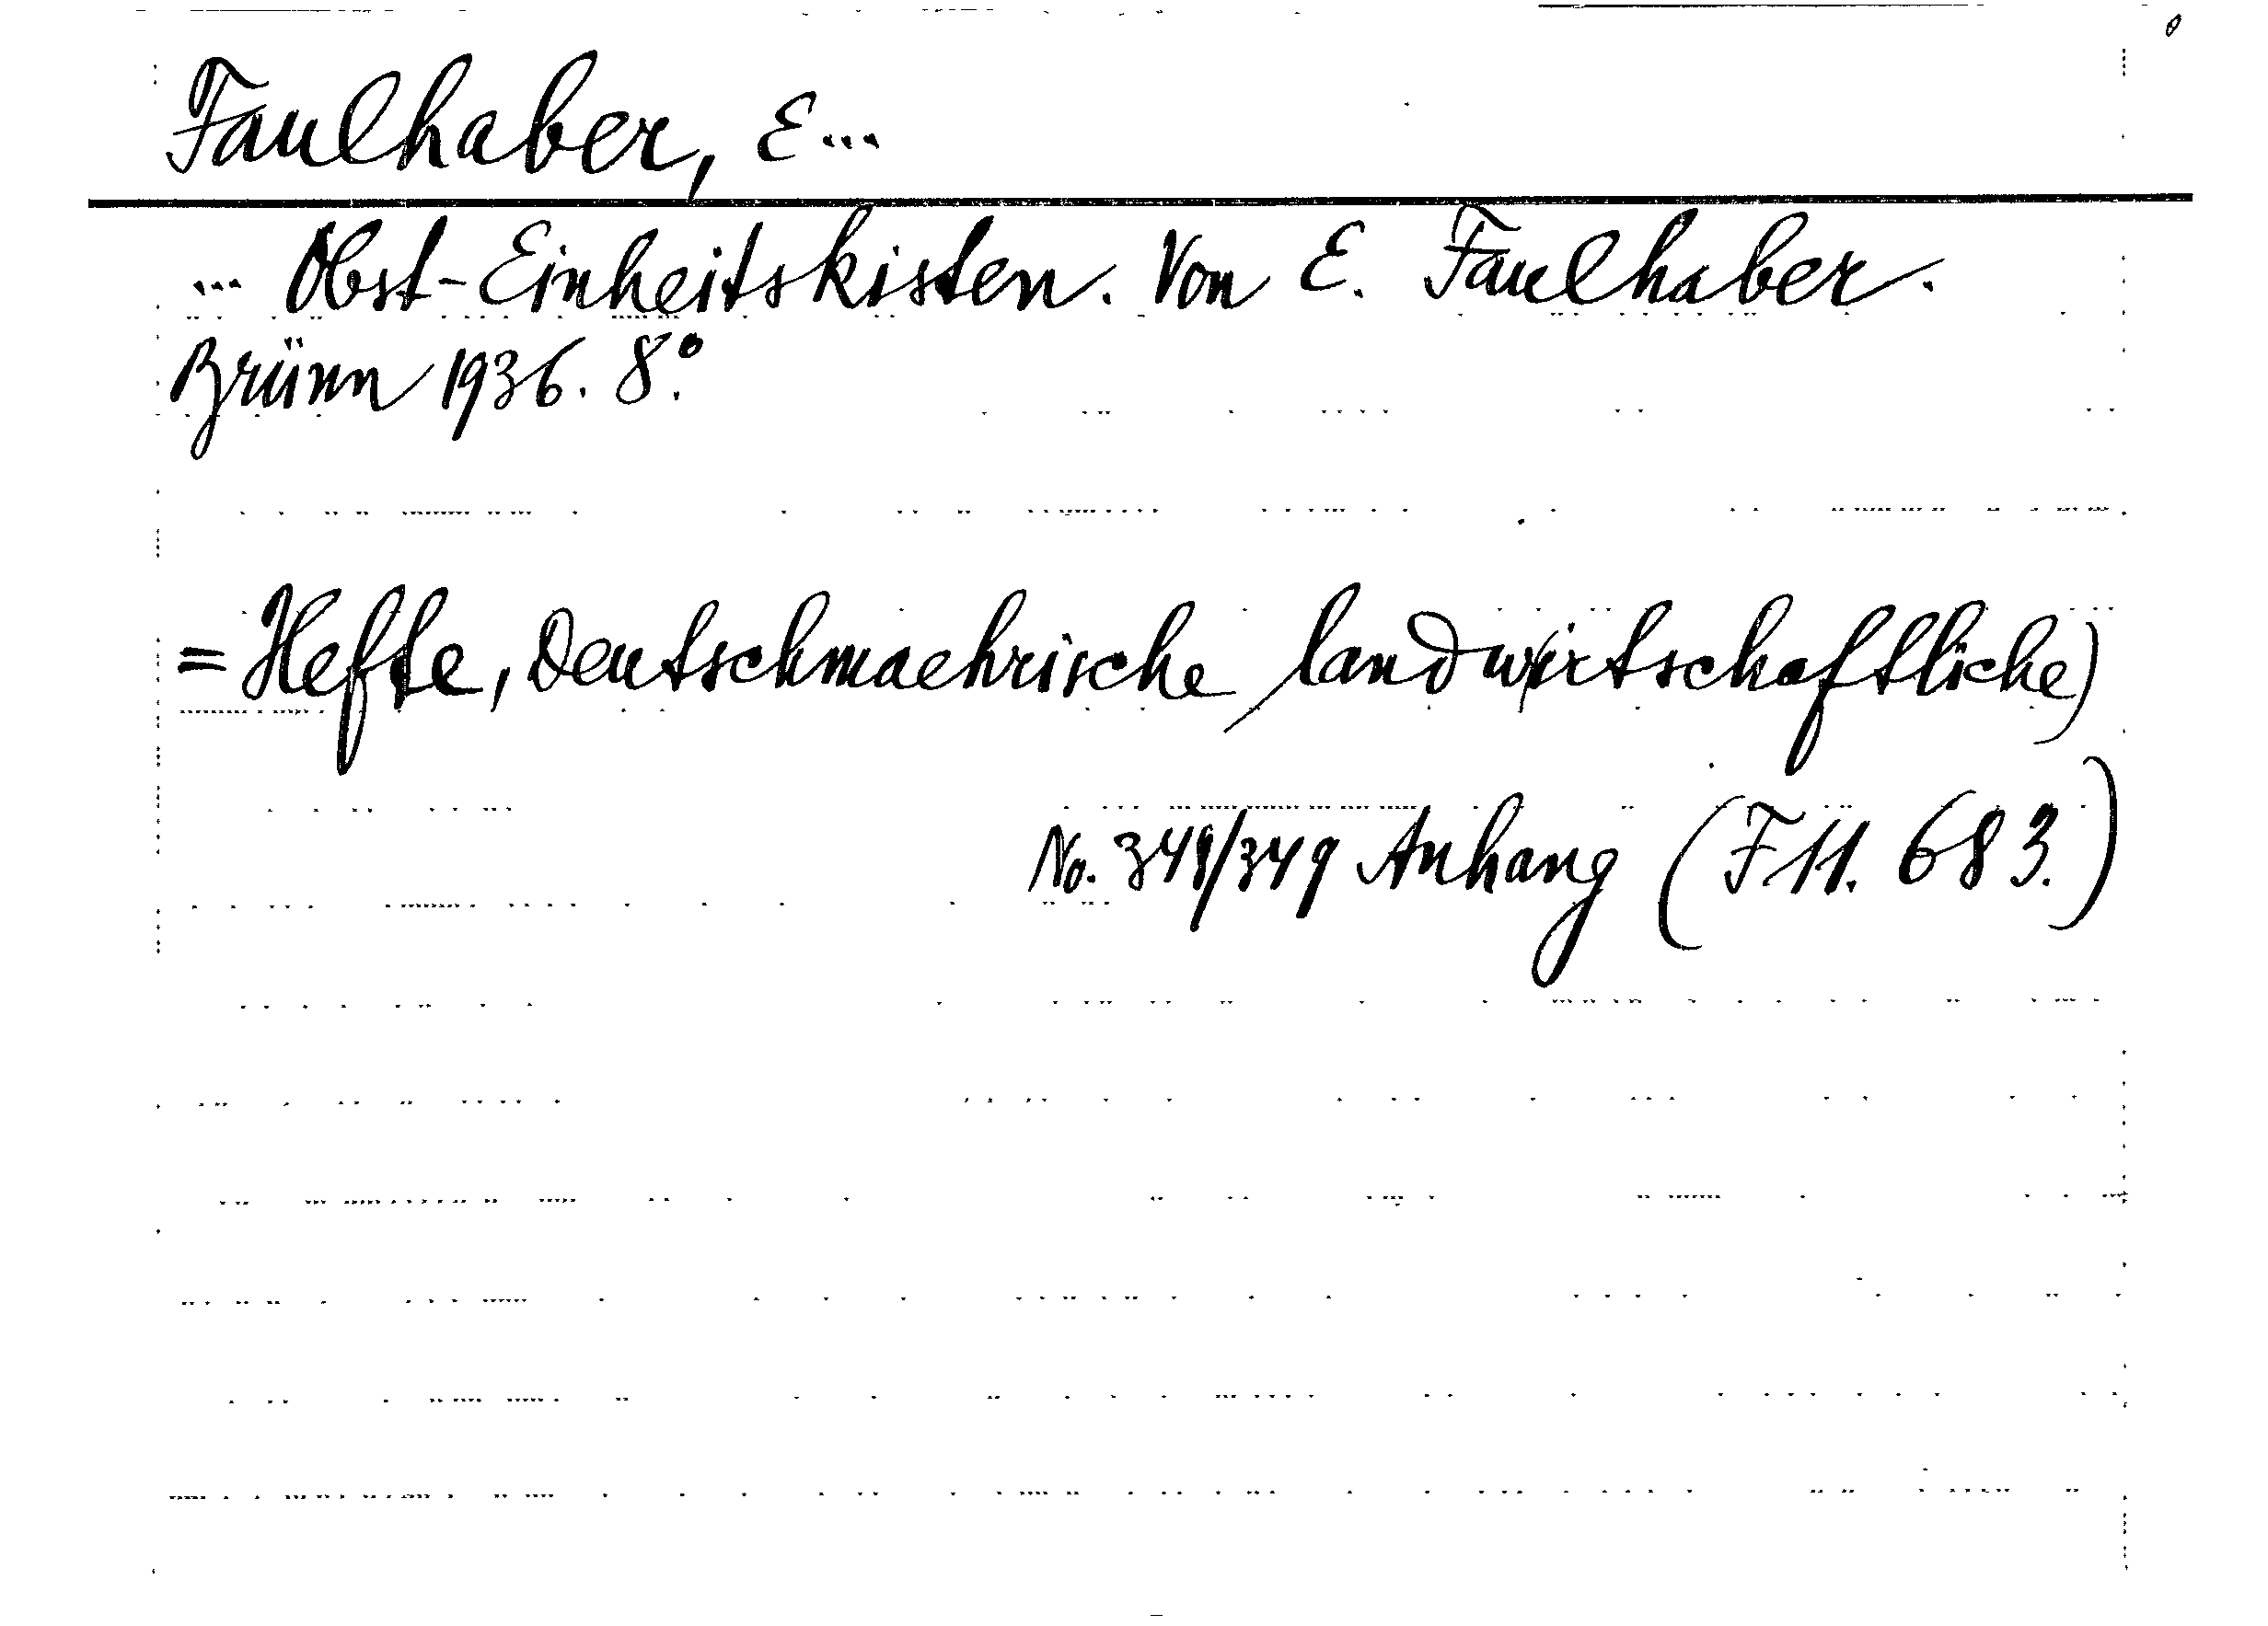 Faulhaber, E...
... Obst-Einheitskisten. Von E. Faulhaber.
Brünn 1936. 8.°
= Hefte, Deutschmaehrische (landwirtschaftliche)
No. 348/349 Anhang (F 11. 683.)